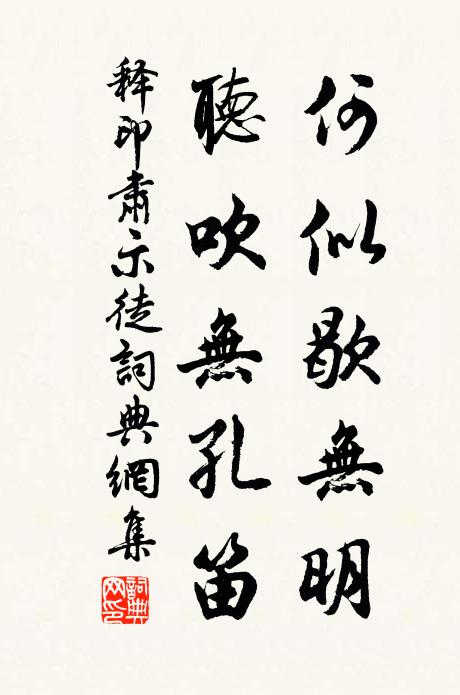 何似歇無明
聽吹無孔笛
釋印肅示徒詞典網集
詞典網印